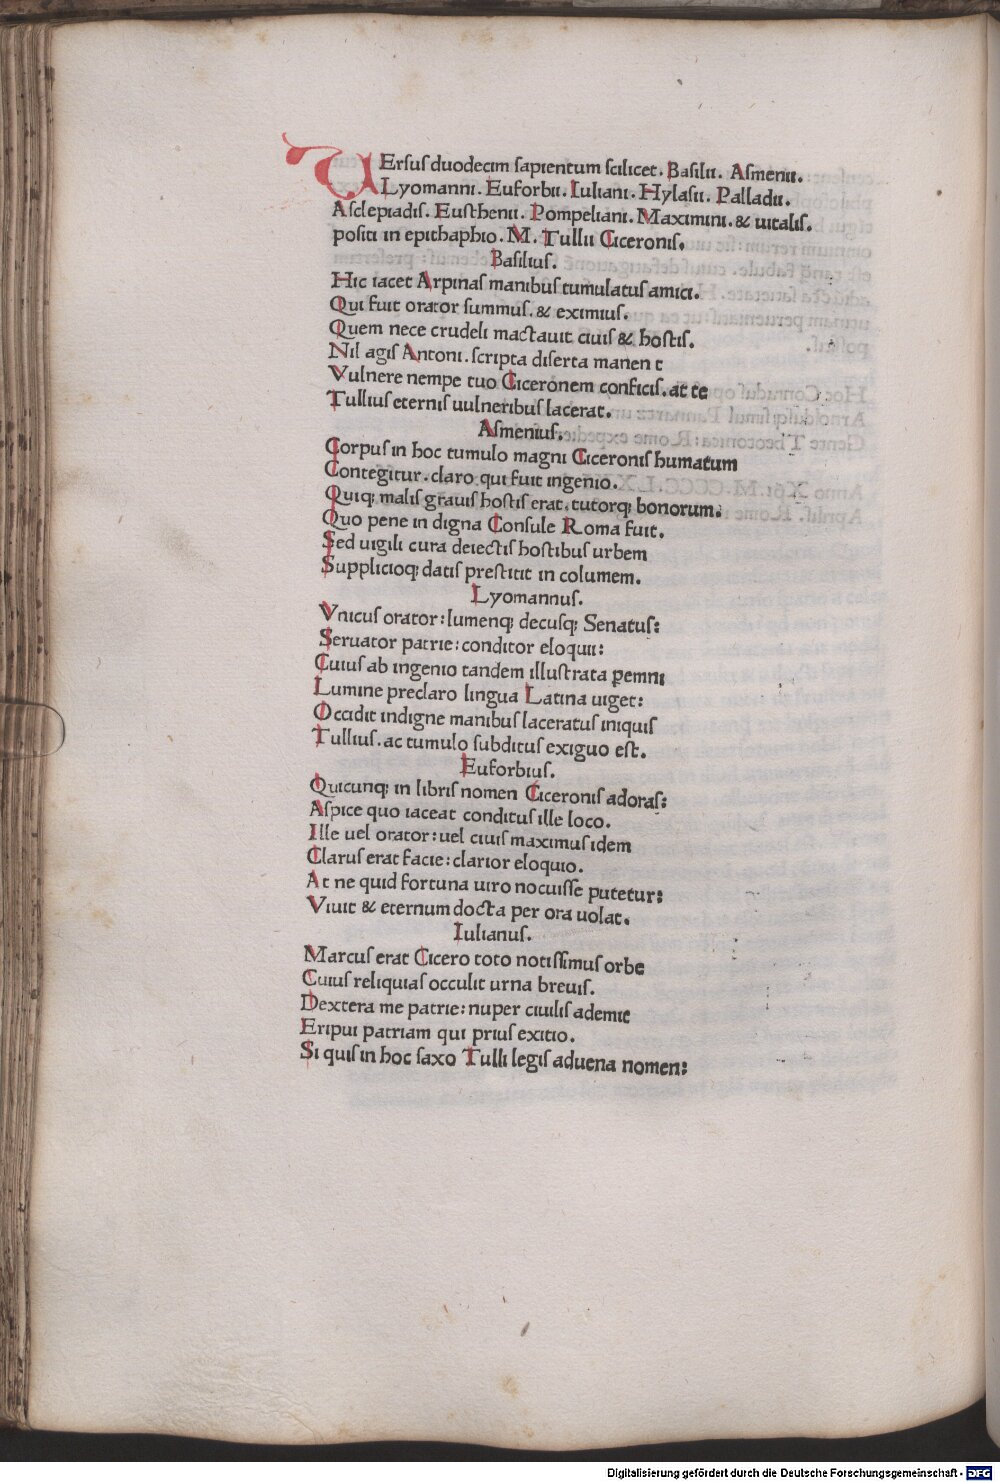 VErsus duodecim sapientum scilicet. Basilii. Asmenii.
Lyomanni. Euforbii. Iuliani. Hylasii. Palladii.
Asclepiadis. Eusthenii. Pompeliani. Maximini. & uitalis.
positi in epithaphio. M. Tullii Ciceronis.
Basilius.
Hic iacet Arpinas manibus tumulatus amici.
Qui fuit orator summus. & eximius.
Quem nece crudeli mactauit ciuis & hostis.
Nil agis Antoni. scripta diserta manen t
Vulnere nempe tuo Ciceronem conficis. at te
Tullius eternis uulneribus lacerat.
Asmenius.
Corpus in hoc tumulo magni Ciceronis humatum
Contegitur. claro qui fuit ingenio.
Quiq; malis grauis hostis erat. tutorq; bonorum:
Quo pene in digna Consule Roma fuit.
Sed uigili cura deiectis hostibus urbem
Supplicioq; datis prestitit in columem.
Lyomannus.
Vnicus orator: lumenq; decusq; Senatus:
Seruator patrie: conditor eloquii:
Cuius ab ingenio tandem illustrata ꝑemni
Lumine preclaro lingua Latina uiget:
Occidit indigne manibus laceratus iniquis
Tullius. ac tumulo subditus exiguo est.
Euforbius.
Quicunq; in libris nomen Ciceronis adoras:
Aspice quo iaceat conditus ille loco.
Ille uel orator: uel ciuis maximus idem
Clarus erat facie: clarior eloquio.
At ne quid fortuna uiro nocuisse putetur:
Viuit & eternum docta per ora uolat.
Iulianus.
Marcus erat Cicero toto notissimus orbe
Cuius reliquias occulit urna breuis.
Dextera me patrie: nuper ciuilis ademit
Eripui patriam qui prius exitio.
Si quis in hoc saxo Tulli legis aduena nomen:
Digitalisierung gefördert durch die Deutsche Forschungsgemeinschaft - DFG